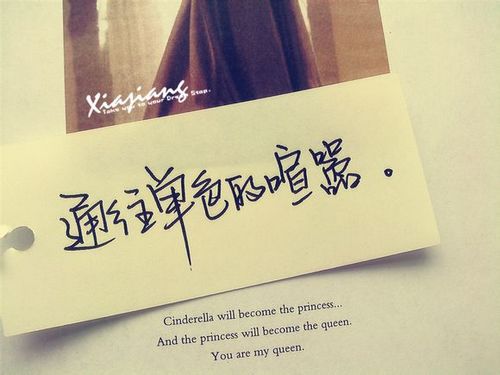 Xiajiang
Take you to your Drag Stop.
通往单色的喧嚣。
Cinderella will become the princess...
And the princess will become the queen.
You are my queen.